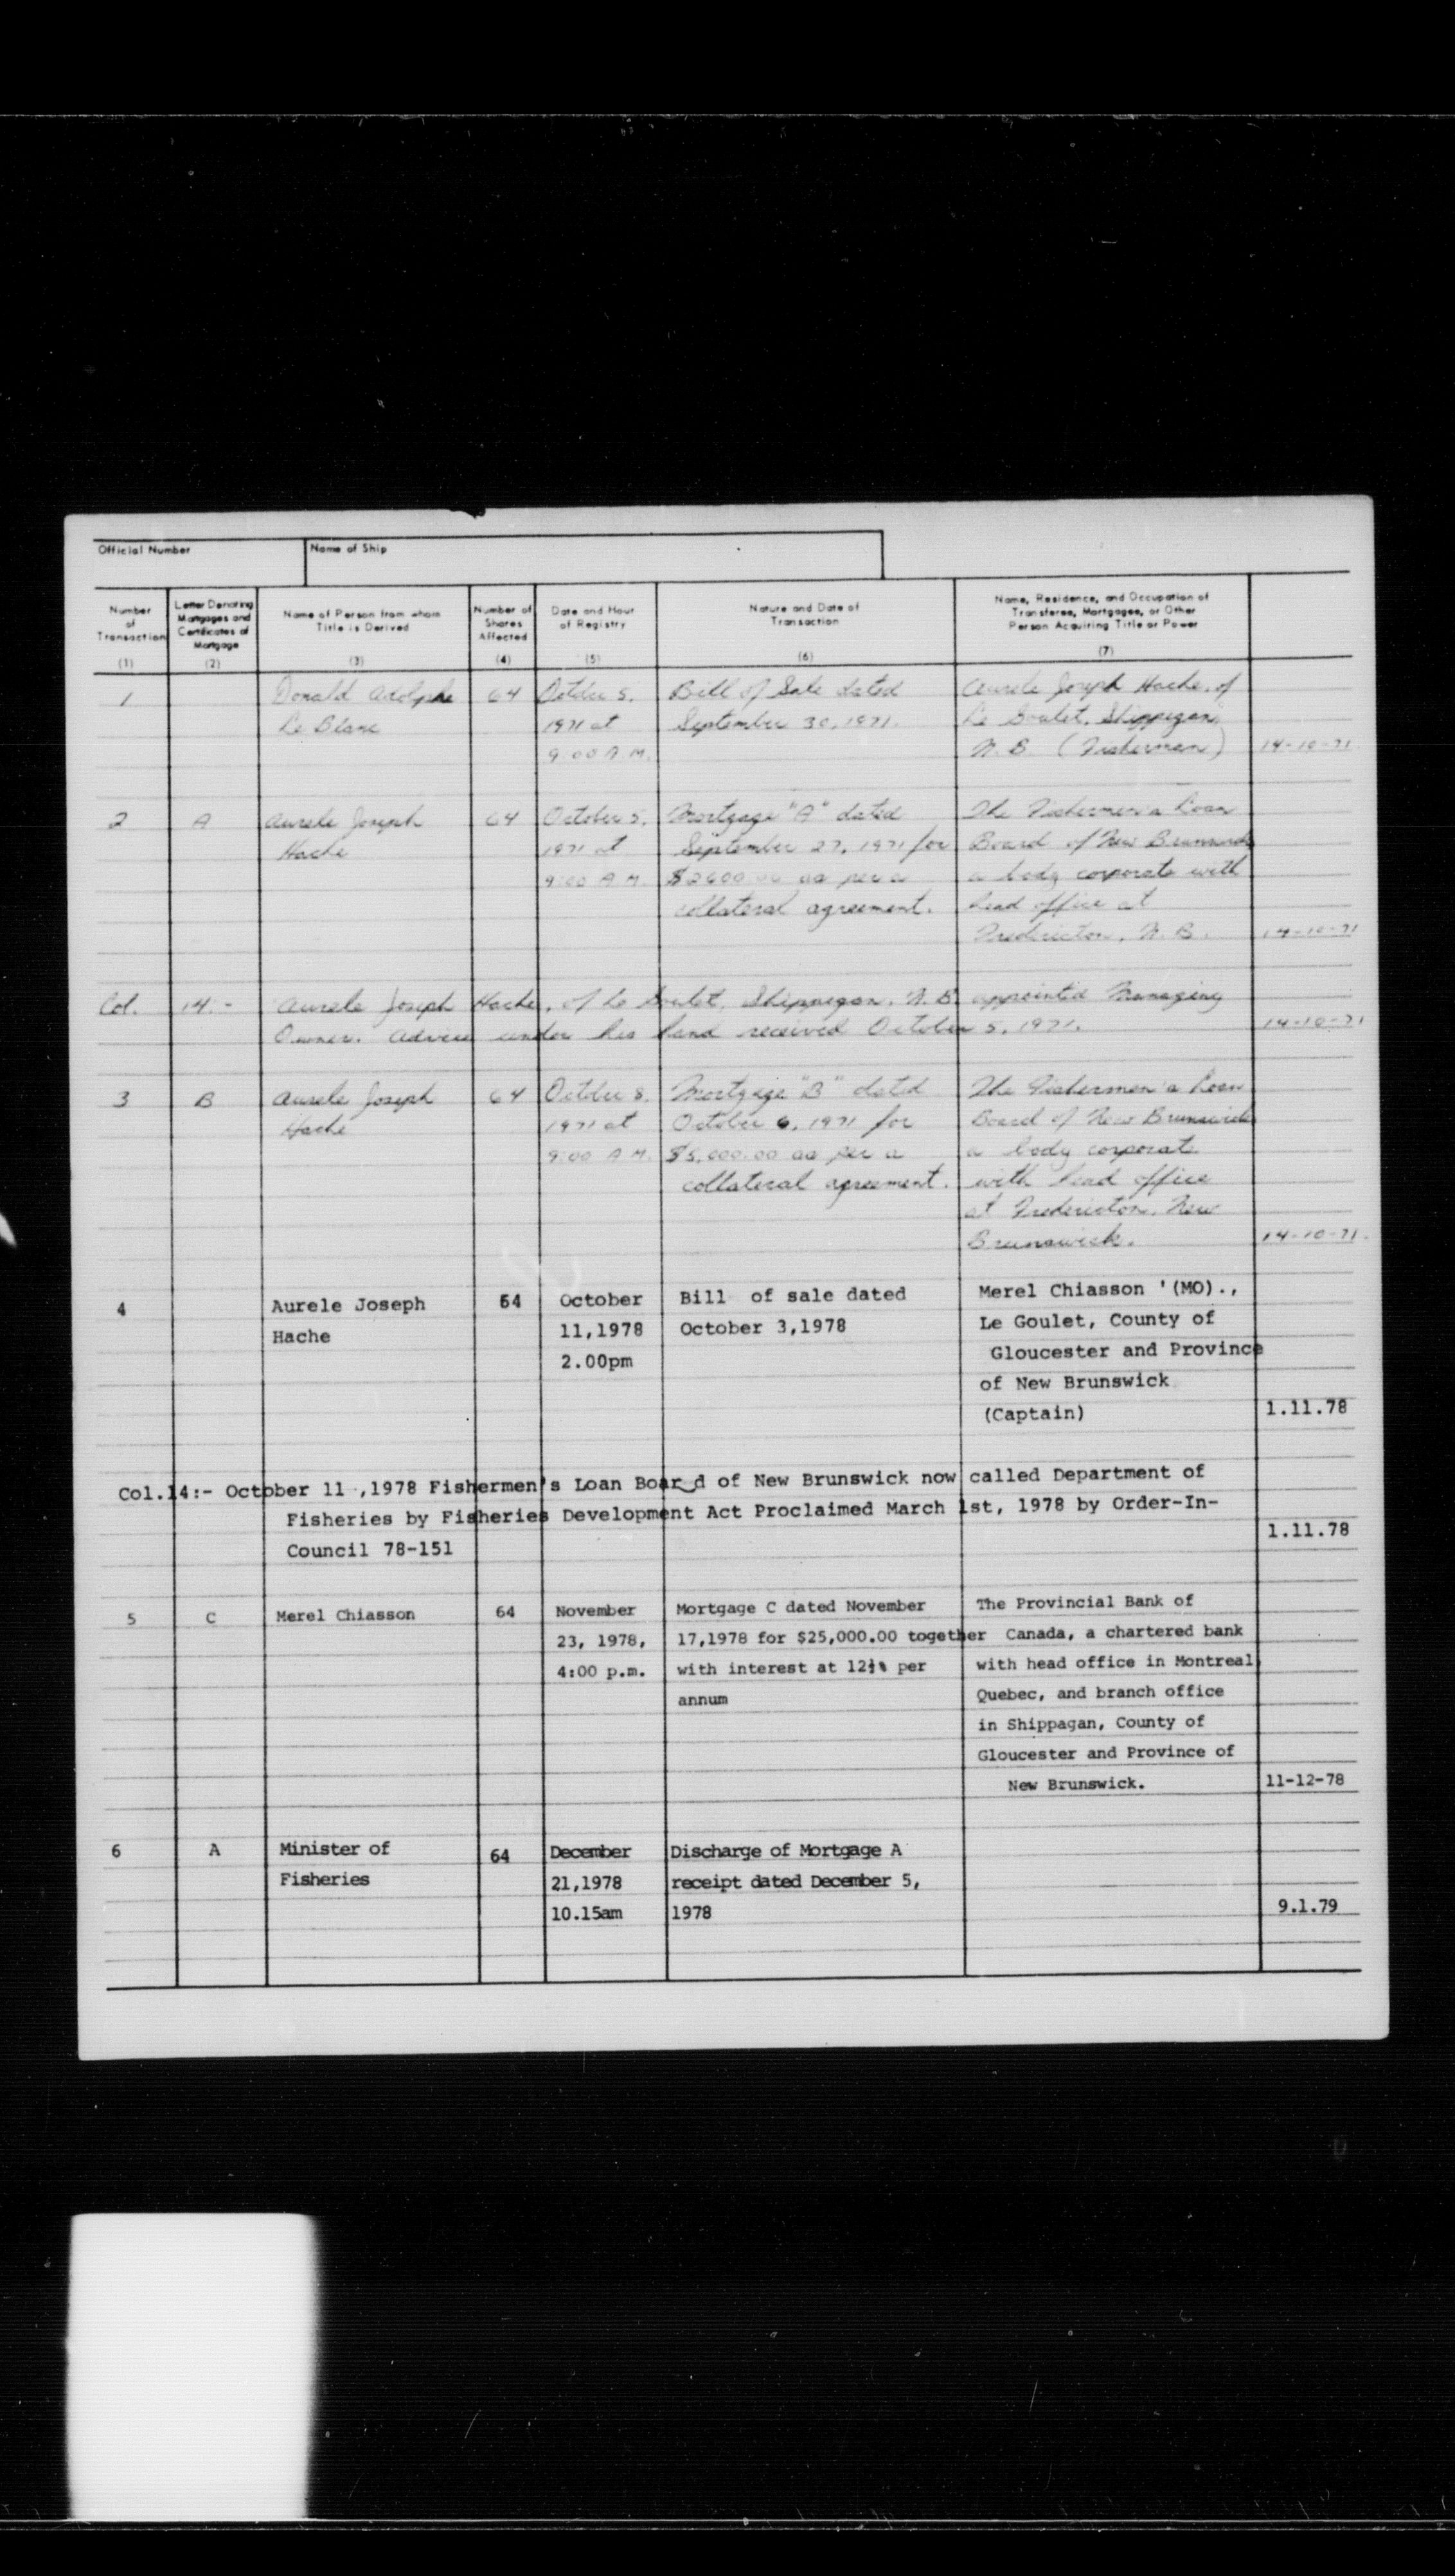 Official Number
Name of Ship
Number of Transaction (1)
Letter Denoting Mortgages and Certificates of Mortgage (2)
Name of Person from whom Title is Derived (3)
Number of Shares Affected (4)
Date and Hour of Registry (5)
Nature and Date of Transaction (6)
Name, Residence, and Occupation of Transferee, Mortgagee, or Other Person Acquiring Title or Power (7)
1 Donald Adolphe 64 October 5, Bill of Sale dated Aurele Joseph Hache, of
Le Blanc 1971 at September 30, 1971. Le Goulet, Shippegan,
9:00 A.M. N.B. (Fisherman) 14-10-71
2 A Aurele Joseph 64 October 5, Mortgage "A" dated The Fishermen's Loan
Hache 1971 at September 27, 1971 for Board of New Brunswick
9:00 A.M. $2600.00 as per a a body corporate with
collateral agreement. head office at
Fredericton, N.B. 14-10-71
Col. 14:- Aurele Joseph Hache, of Le Goulet, Shippegan, N.B. appointed Managing
Owner. Advice under his hand received October 5, 1971. 14-10-71
3 B Aurele Joseph 64 October 8, Mortgage "B" dated The Fishermen's Loan
Hache 1971 at October 6, 1971 for Board of New Brunswick
9:00 A.M. $5,000.00 as per a a body corporate
collateral agreement. with head office
at Fredericton, New
Brunswick. 14-10-71.
4 Aurele Joseph 64 October Bill of sale dated Merel Chiasson '(MO).,
Hache 11,1978 October 3,1978 Le Goulet, County of
2.00pm Gloucester and Province
of New Brunswick
(Captain) 1.11.78
Col.14:- October 11 ,1978 Fishermen's Loan Board of New Brunswick now called Department of
Fisheries by Fisheries Development Act Proclaimed March 1st, 1978 by Order-In-
Council 78-151 1.11.78
5 C Merel Chiasson 64 November Mortgage C dated November The Provincial Bank of
23, 1978, 17,1978 for $25,000.00 together Canada, a chartered bank
4:00 p.m. with interest at per with head office in Montreal
annum Quebec, and branch office
in Shippagan, County of
Gloucester and Province of
New Brunswick. 11-12-78
6 A Minister of 64 December Discharge of Mortgage A
Fisheries 21,1978 receipt dated December 5,
10.15am 1978 9.1.79